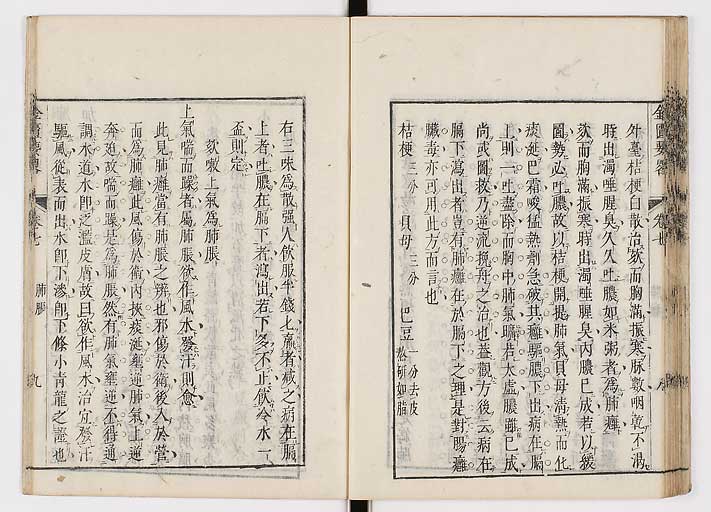 金匱要略 卷七
外臺桔梗白散治欬而胸滿振寒脉數咽乾不渴
時出濁唾腥臭久久吐膿如米粥者爲肺癰
欬而胸滿振寒時出濁唾腥臭内膿已成若以緩
圖勢必吐膿故以桔梗開提肺氣貝母清熱而化
痰涎巴霜峻猛熱劑急破其癰驅膿下出病在膈
上則一吐盡除而胸中肺氣曠若太虛膿雖已成
尚或圖救乃逆流挽舟之治也蓋觀方後云病在
膈下瀉出者豈有肺癰在於膈下之理是對腸癰
臟毒亦可用此方而言也
桔梗 三分 貝母 三分 巴豆 一分去皮熬研如脂
右三味爲散强人飲服半錢匕羸者減之病在膈
上者吐膿在膈下者瀉出若下多不止飲冷水一
盃則定
欬嗽上氣爲肺脹
上氣喘而躁者屬肺脹欲作風水發汗則愈
此見肺癰當有肺脹之辨也邪傷於衛後入於營
而爲肺癰此風傷於衛内挾痰涎壅逆肺氣上逆
奔迫故喘而躁是爲肺脹然有肺氣壅逆不得通
調水道水卽泛濫皮膚故曰欲作風水治宜發汗
驅風從表而出水卽下滲卽下條小青龍之證也
金匱要略 卷七 肺脹 九